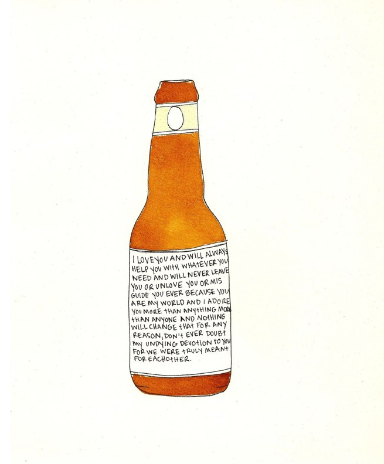 I LOVE YOU AND WILL ALWAYS
HELP YOU WITH WHATEVER YOU
NEED AND WILL NEVER LEAVE
YOU OR UNLOVE YOU OR MIS
GUIDE YOU EVER BECAUSE YOU
ARE MY WORLD AND I ADORE
YOU MORE THAN ANYTHING MORE
THAN ANYONE AND NOTHING
WILL CHANGE THAT FOR ANY
REASON, DON'T EVER DOUBT
MY UNDYING DEVOTION TO YOU
FOR WE WERE TRULY MEANT
FOR EACHOTHER.